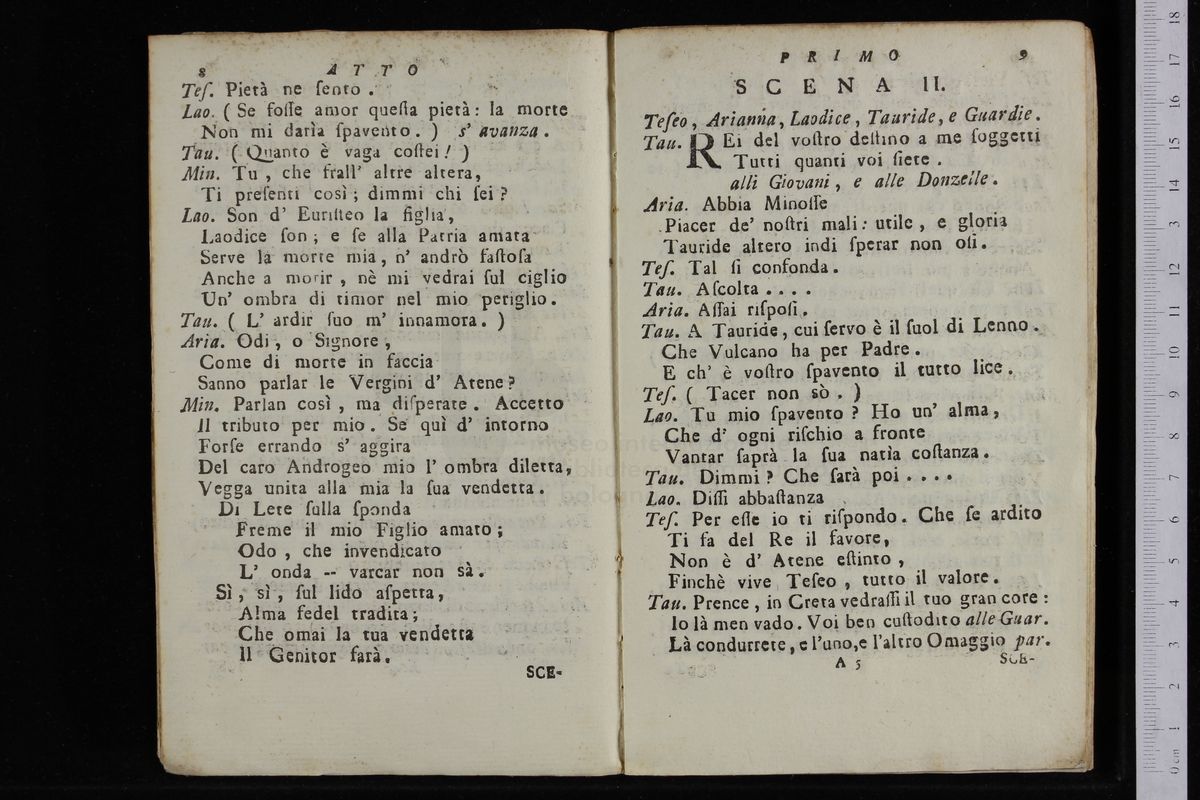 8 ATTO
Teſ. Pietà ne ſento .
Lao. ( Se foſſe amor queſta pietà : la morte
Non mi darìa ſpavento . ) s' avanza .
Tau. ( Quanto è vaga coſtei ! )
Min. Tu , che frall' altre altera,
Ti preſenti così ; dimmi chi ſei ?
Lao. Son d' Euriſteo la figlia ,
Laodice ſon ; e ſe alla Patria amata
Serve la morte mia , n' andrò faſtoſa
Anche a morir , nè mi vedrai ſul ciglio
Un' ombra di timor nel mio periglio .
Tau. ( L' ardir ſuo m' innamora . )
Aria. Odi , o Signore ,
Come di morte in faccia
Sanno parlar le Vergini d' Atene ?
Min. Parlan così , ma diſperate . Accetto
Il tributo per mio . Se quì d' intorno
Forſe errando s' aggira
Del caro Androgeo mio l' ombra diletta ,
Vegga unita alla mia la ſua vendetta .
Di Lete ſulla ſponda
Freme il mio Figlio amato ;
Odo , che invendicato
L' onda -- varcar non sà .
Sì , sì , ſul lido aſpetta ,
Alma fedel tradita ;
Che omai la tua vendetta
Il Genitor farà .
SCE-
PRIMO 9
SCENA II.
Teſeo , Arianna , Laodice , Tauride , e Guardie .
Tau. REi del voſtro deſtino a me ſoggetti
Tutti quanti voi ſiete .
alli Giovani , e alle Donzelle .
Aria. Abbia Minoſſe
Piacer de' noſtri mali : utile , e gloria
Tauride altero indi ſperar non oſi .
Teſ. Tal ſi confonda .
Tau. Aſcolta . . . .
Aria. Aſſai riſpoſi .
Tau. A Tauride , cui ſervo è il ſuol di Lenno .
Che Vulcano ha per Padre .
E ch' è voſtro ſpavento il tutto lice .
Teſ. ( Tacer non sò . )
Lao. Tu mio ſpavento ? Ho un' alma ,
Che d' ogni riſchio a fronte
Vantar ſaprà la ſua natìa coſtanza .
Tau. Dimmi ? Che ſarà poi . . . .
Lao. Diſſi abbaſtanza
Teſ. Per eſſe io ti riſpondo . Che ſe ardito
Ti fa del Re il favore ,
Non è d' Atene eſtinto ,
Finchè vive Teſeo , tutto il valore .
Tau. Prence , in Creta vedraſſi il tuo gran core :
Io là men vado . Voi ben cuſtodito alle Guar.
Là condurrete , e l'uno , e l'altro Omaggio par.
A 5 SCE-